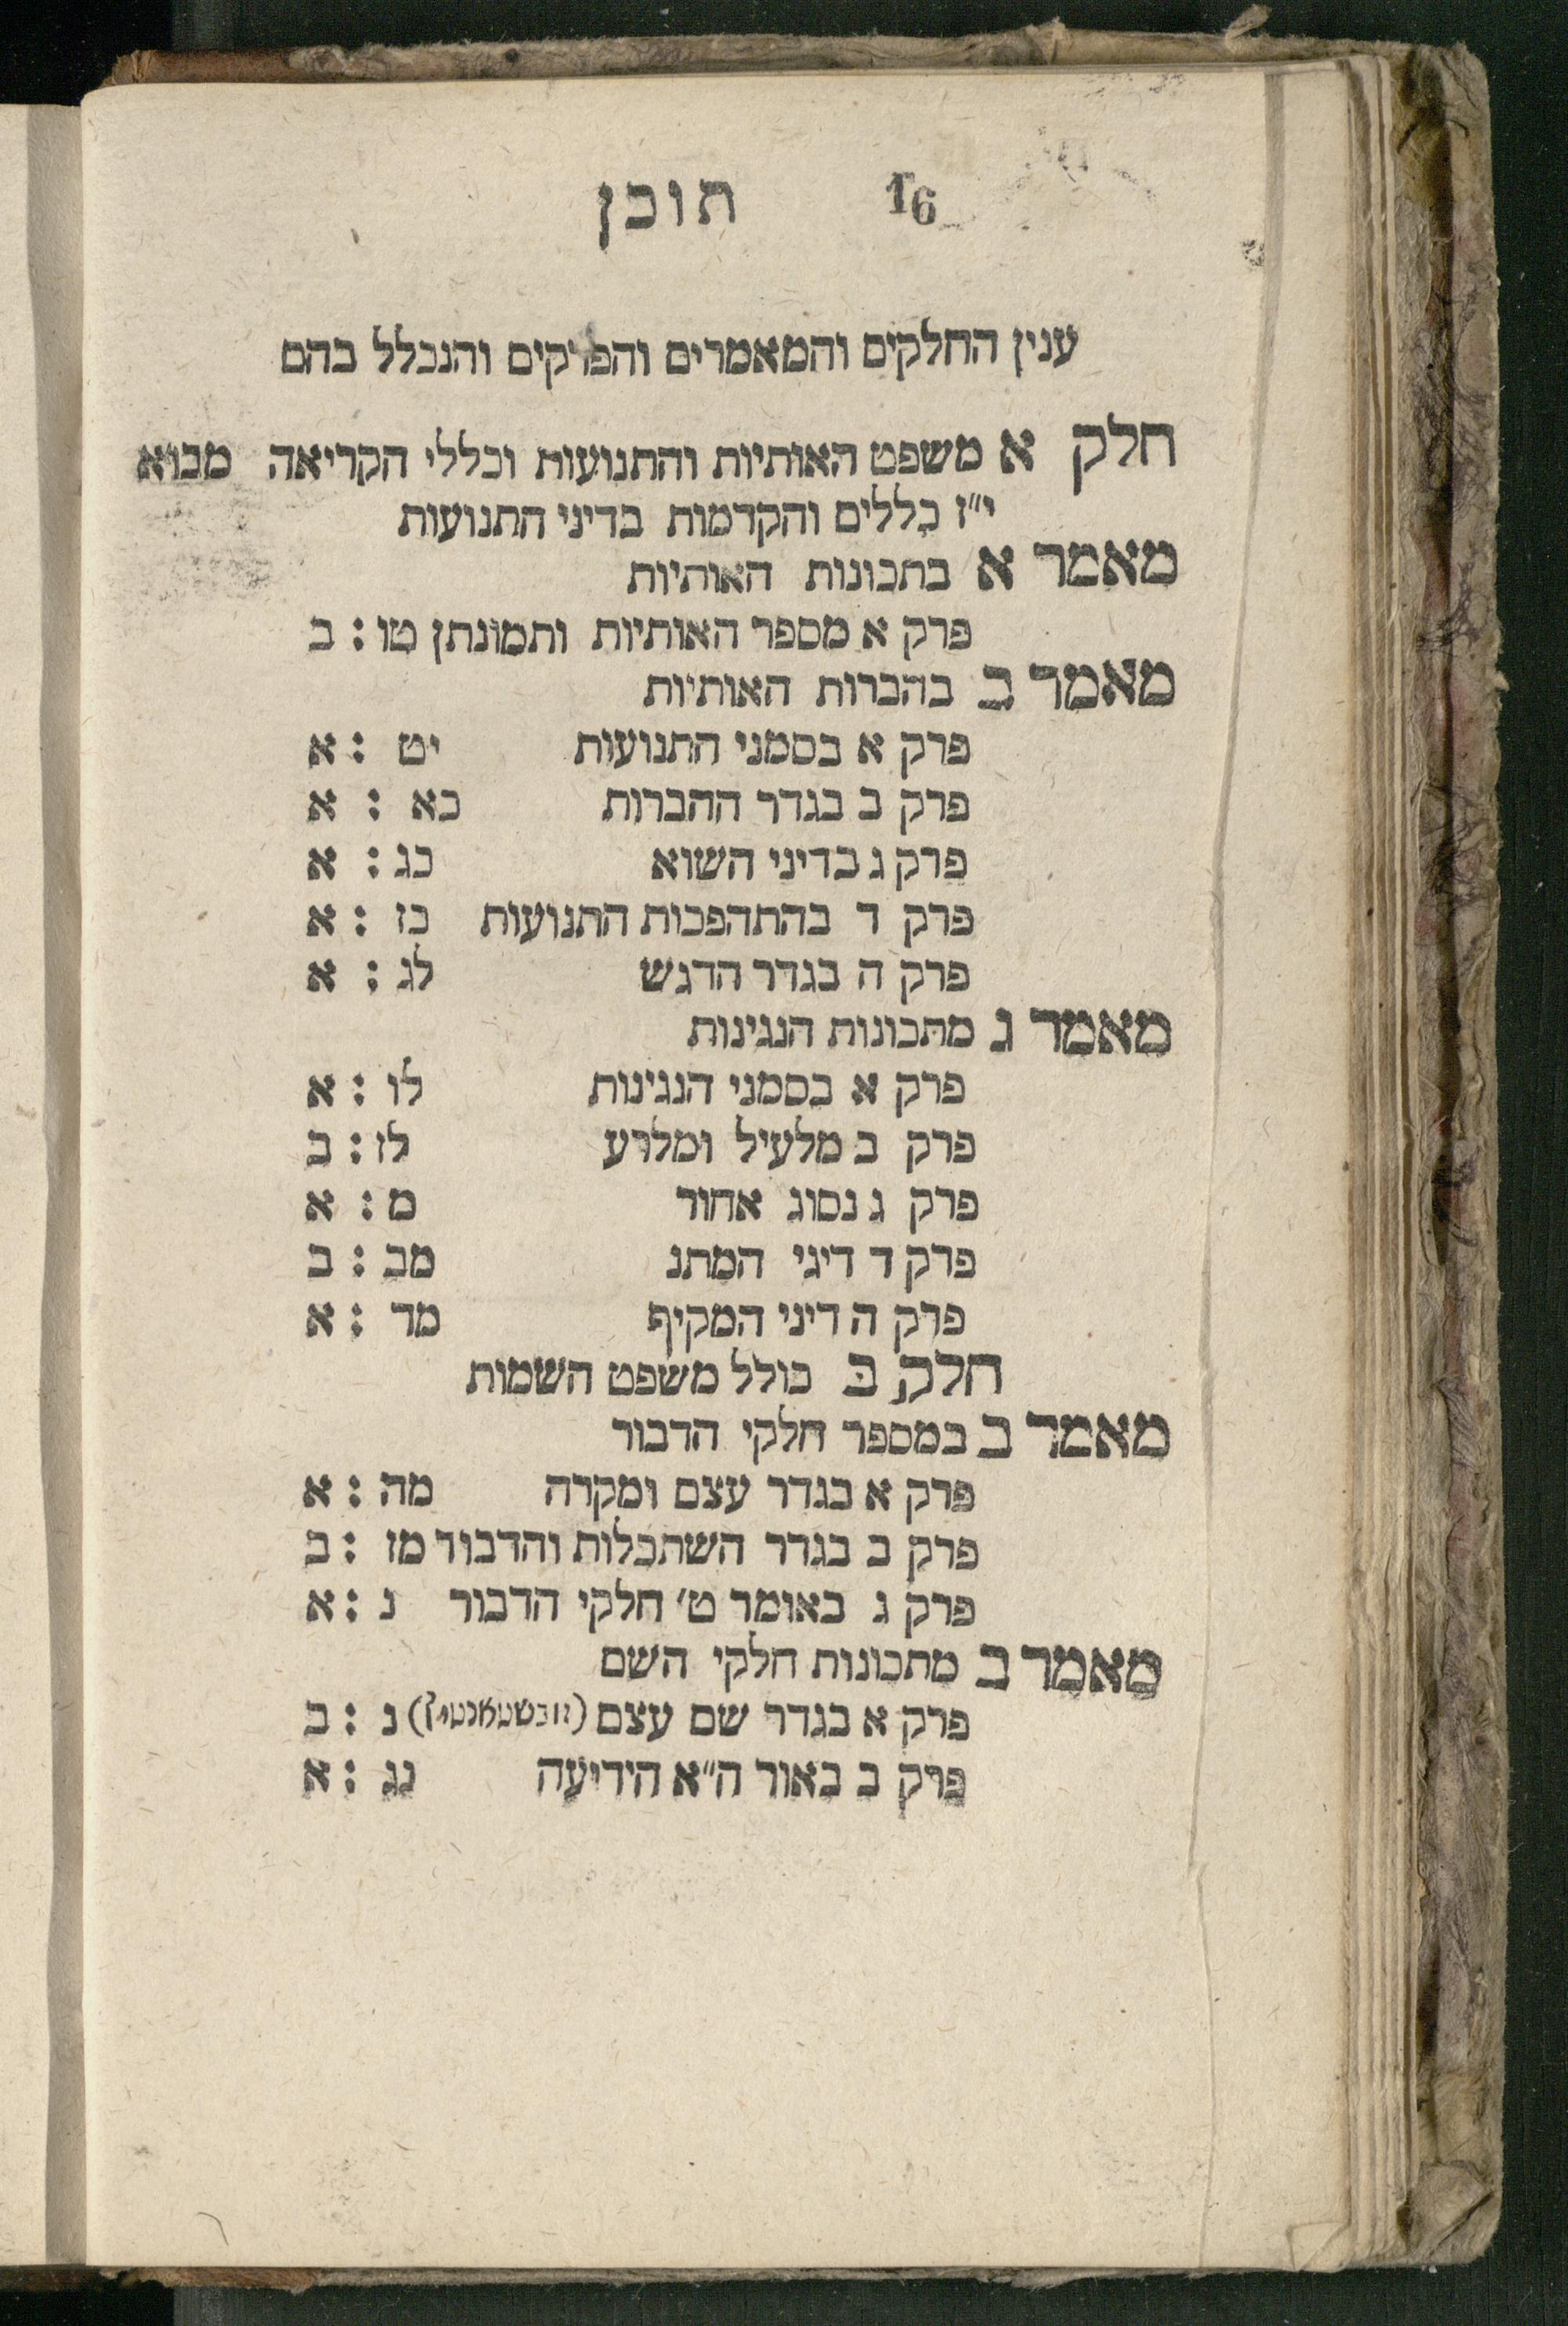 תוכן 16
ענין החלקים והמאמרים והפרקים והנכלל בהם
חלק א משפט האותיות והתנועות וכללי הקריאה מבוא
י״ז כללים והקדמות בדיני התנועות
מאמר א בתכונות האותיות
פרק א מספר האותיות ותמונתן טו : ב
מאמר ב בהברות האותיות
פרק א בסמני התנועות יט : א
פרק ב בגדר ההברות כא : א
פרק ג בדיני השוא כג : א
פרק ד בהתהפכות התנועות כז : א
פרק ה בגדר הדגש לג : א
מאמר ג מתכונות הנגינות
פרק א בסמני הנגינות לו : א
פרק ב מלעיל ומלרע לז : ב
פרק ג נסוג אחור מ : א
פרק ד דיני המתג מב : ב
פרק ה דיני המקיף מד : א
חלק ב כולל משפט השמות
מאמר ב במספר חלקי הדבור
פרק א בגדר עצם ומקרה מה : א
פרק ב בגדר השתכלות והדבור מז : ב
פרק ג באומר ט׳ חלקי הדבור נ : א
מאמר ב מתכונות חלקי השם
פרק א בגדר שם עצם (זובשטאנטיף) נ : ב
פרק ב באור ה״א הידיעה נג : א